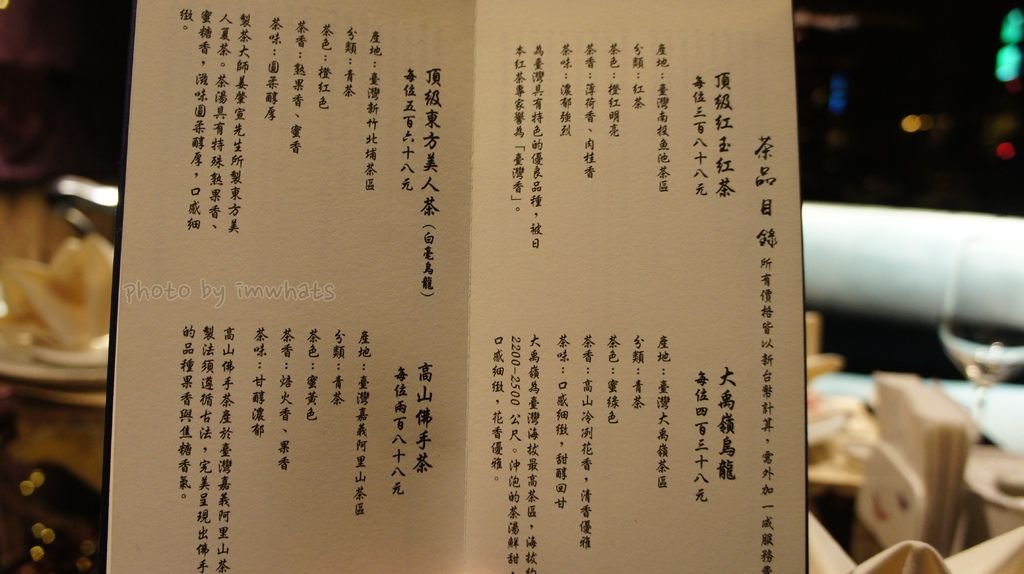 茶品目錄 所有價格皆以新台幣計算，意外加一成服務費
頂級紅玉紅茶
每位三百八十八元
產地：臺灣南投魚池茶區
分類：紅茶
茶色：橙紅明亮
茶香：薄荷香、肉桂香
茶味：濃郁強烈
為臺灣具有特色的優良品種，被日
本紅茶專家譽為「臺灣香」。
大禹嶺烏龍
每位四百三十八元
產地：臺灣大禹嶺茶區
分類：青茶
茶色：蜜綠色
茶香：高山冷冽花香，清香優雅
茶味：口感細緻，甜醇回甘
大禹嶺為臺灣海拔最高茶區，海拔約
2200-2500 公尺。沖泡的茶湯鮮甜，
口感細緻，花香優雅。
頂級東方美人茶（白毫烏龍）
每位五百六十八元
產地：臺灣新竹北埔茶區
分類：青茶
茶色：橙紅色
茶香：熟果香、蜜香
茶味：圓柔醇厚
製茶大師姜肇宣先生所製東方美
人夏茶。茶湯具有特殊熟果香、
蜜糖香，滋味圓柔醇厚，口感細
緻。
高山佛手茶
每位兩百八十八元
產地：臺灣嘉義阿里山茶區
分類：青茶
茶色：蜜黃色
茶香：焙火香、果香
茶味：甘醇濃郁
高山佛手茶產於臺灣嘉義阿里山茶
製法須遵循古法，完美呈現出佛手
的品種果香與焦糖香氣。
photo by imwhats